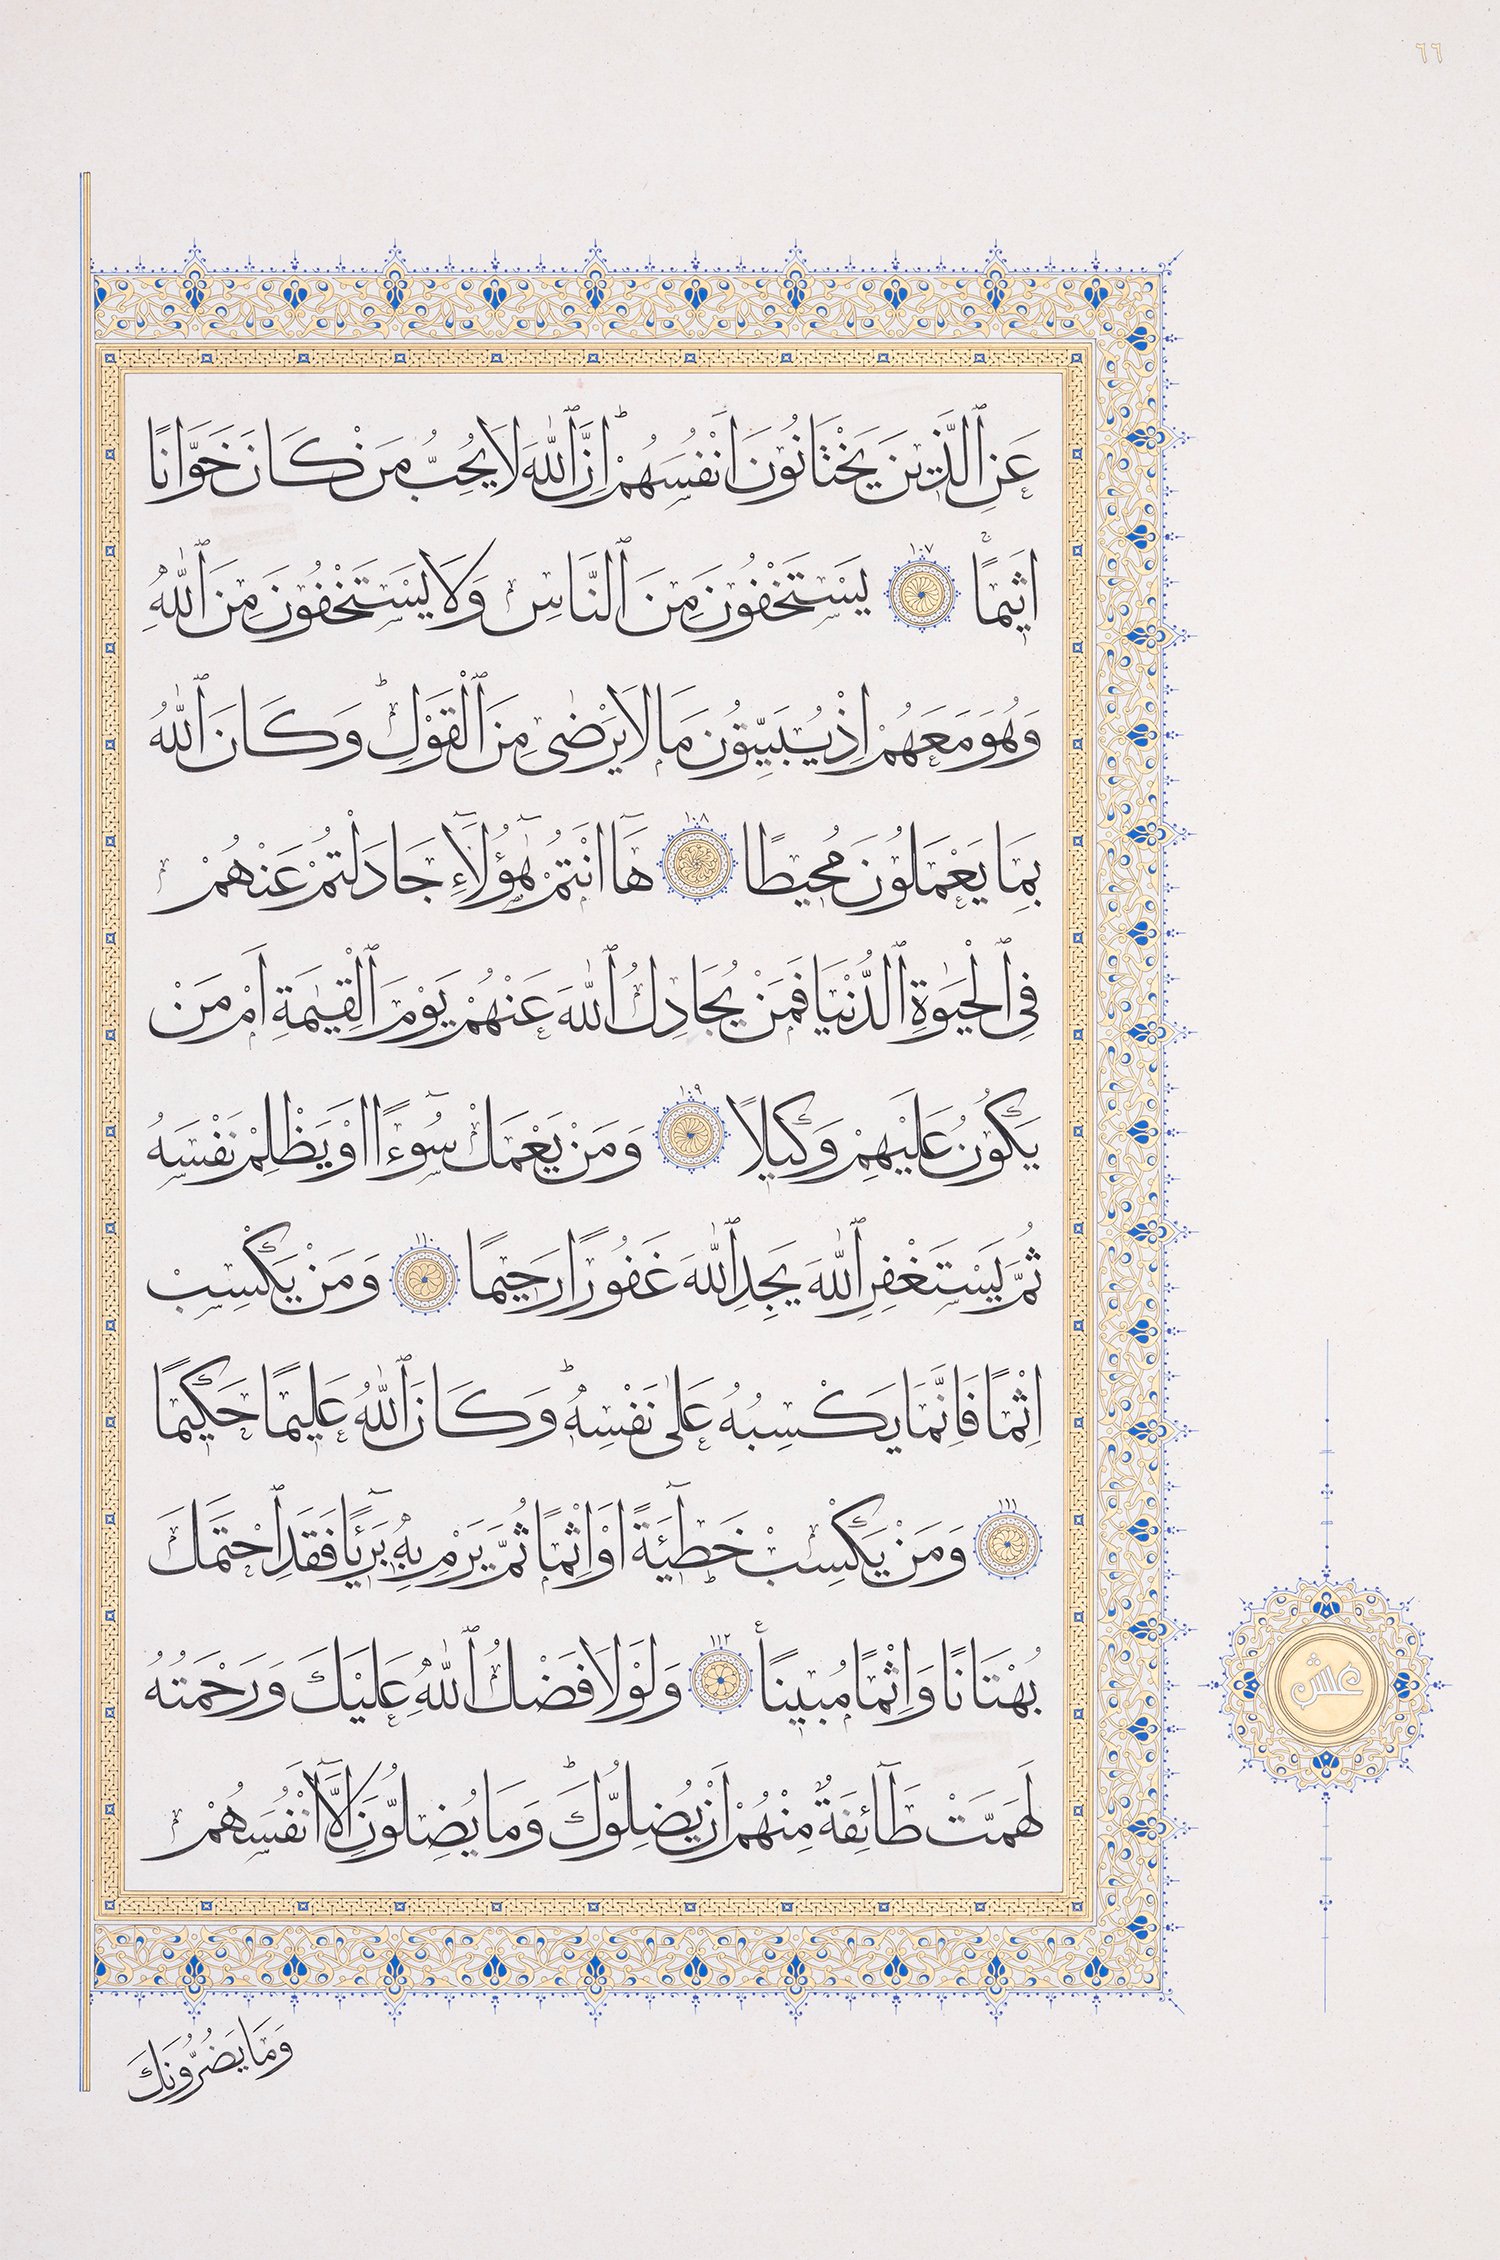 ٦٦
عَنِ ٱلَّذِينَ يَخْتَانُونَ اَنْفُسَهُمْۜ اِنَّ ٱللّٰهَ لَا يُحِبُّ مَنْ كَانَ خَوَّانًا
اَثِيمًا ١٠٧ يَسْتَخْفُونَ مِنَ ٱلنَّاسِ وَلَا يَسْتَخْفُونَ مِنَ ٱللّٰهِ
وَهُوَ مَعَهُمْ اِذْ يُبَيِّتُونَ مَا لَا يَرْضٰى مِنَ ٱلْقَوْلِۜ وَكَانَ ٱللّٰهُ
بِمَا يَعْمَلُونَ مُحِيطًا ١٠٨ هَٓا اَنْتُمْ هٰٓؤُ۬لَٓاءِ جَادَلْتُمْ عَنْهُمْ
فِى ٱلْحَيٰوةِ ٱلدُّنْيَا فَمَنْ يُجَادِلُ ٱللّٰهَ عَنْهُمْ يَوْمَ ٱلْقِيٰمَةِ اَمْ مَنْ
يَكُونُ عَلَيْهِمْ وَكِيلًا ١٠٩ وَمَنْ يَعْمَلْ سُٓوءًا اَوْ يَظْلِمْ نَفْسَهُ
ثُمَّ يَسْتَغْفِرِ ٱللّٰهَ يَجِدِ ٱللّٰهَ غَفُورًا رَحِيمًا ١١٠ وَمَنْ يَكْسِبْ
اِثْمًا فَاِنَّمَا يَكْسِبُهُ عَلٰى نَفْسِهِۜ وَكَانَ ٱللّٰهُ عَلِيمًا حَكِيمًا
١١١ وَمَنْ يَكْسِبْ خَطِٓيـَٔةً اَوْ اِثْمًا ثُمَّ يَرْمِ بِهِ بَرِٓيـًٔا فَقَدِ ٱحْتَمَلَ
بُهْتَانًا وَاِثْمًا مُبِينًا ١١٢ وَلَوْلَا فَضْلُ ٱللّٰهِ عَلَيْكَ وَرَحْمَتُهُ
لَهَمَّتْ طَٓائِفَةٌ مِنْهُمْ اَنْ يُضِلُّوكَۜ وَمَا يُضِلُّونَ اِلَّٓا اَنْفُسَهُمْ
عشر
وَمَا يَضُرُّونَكَ